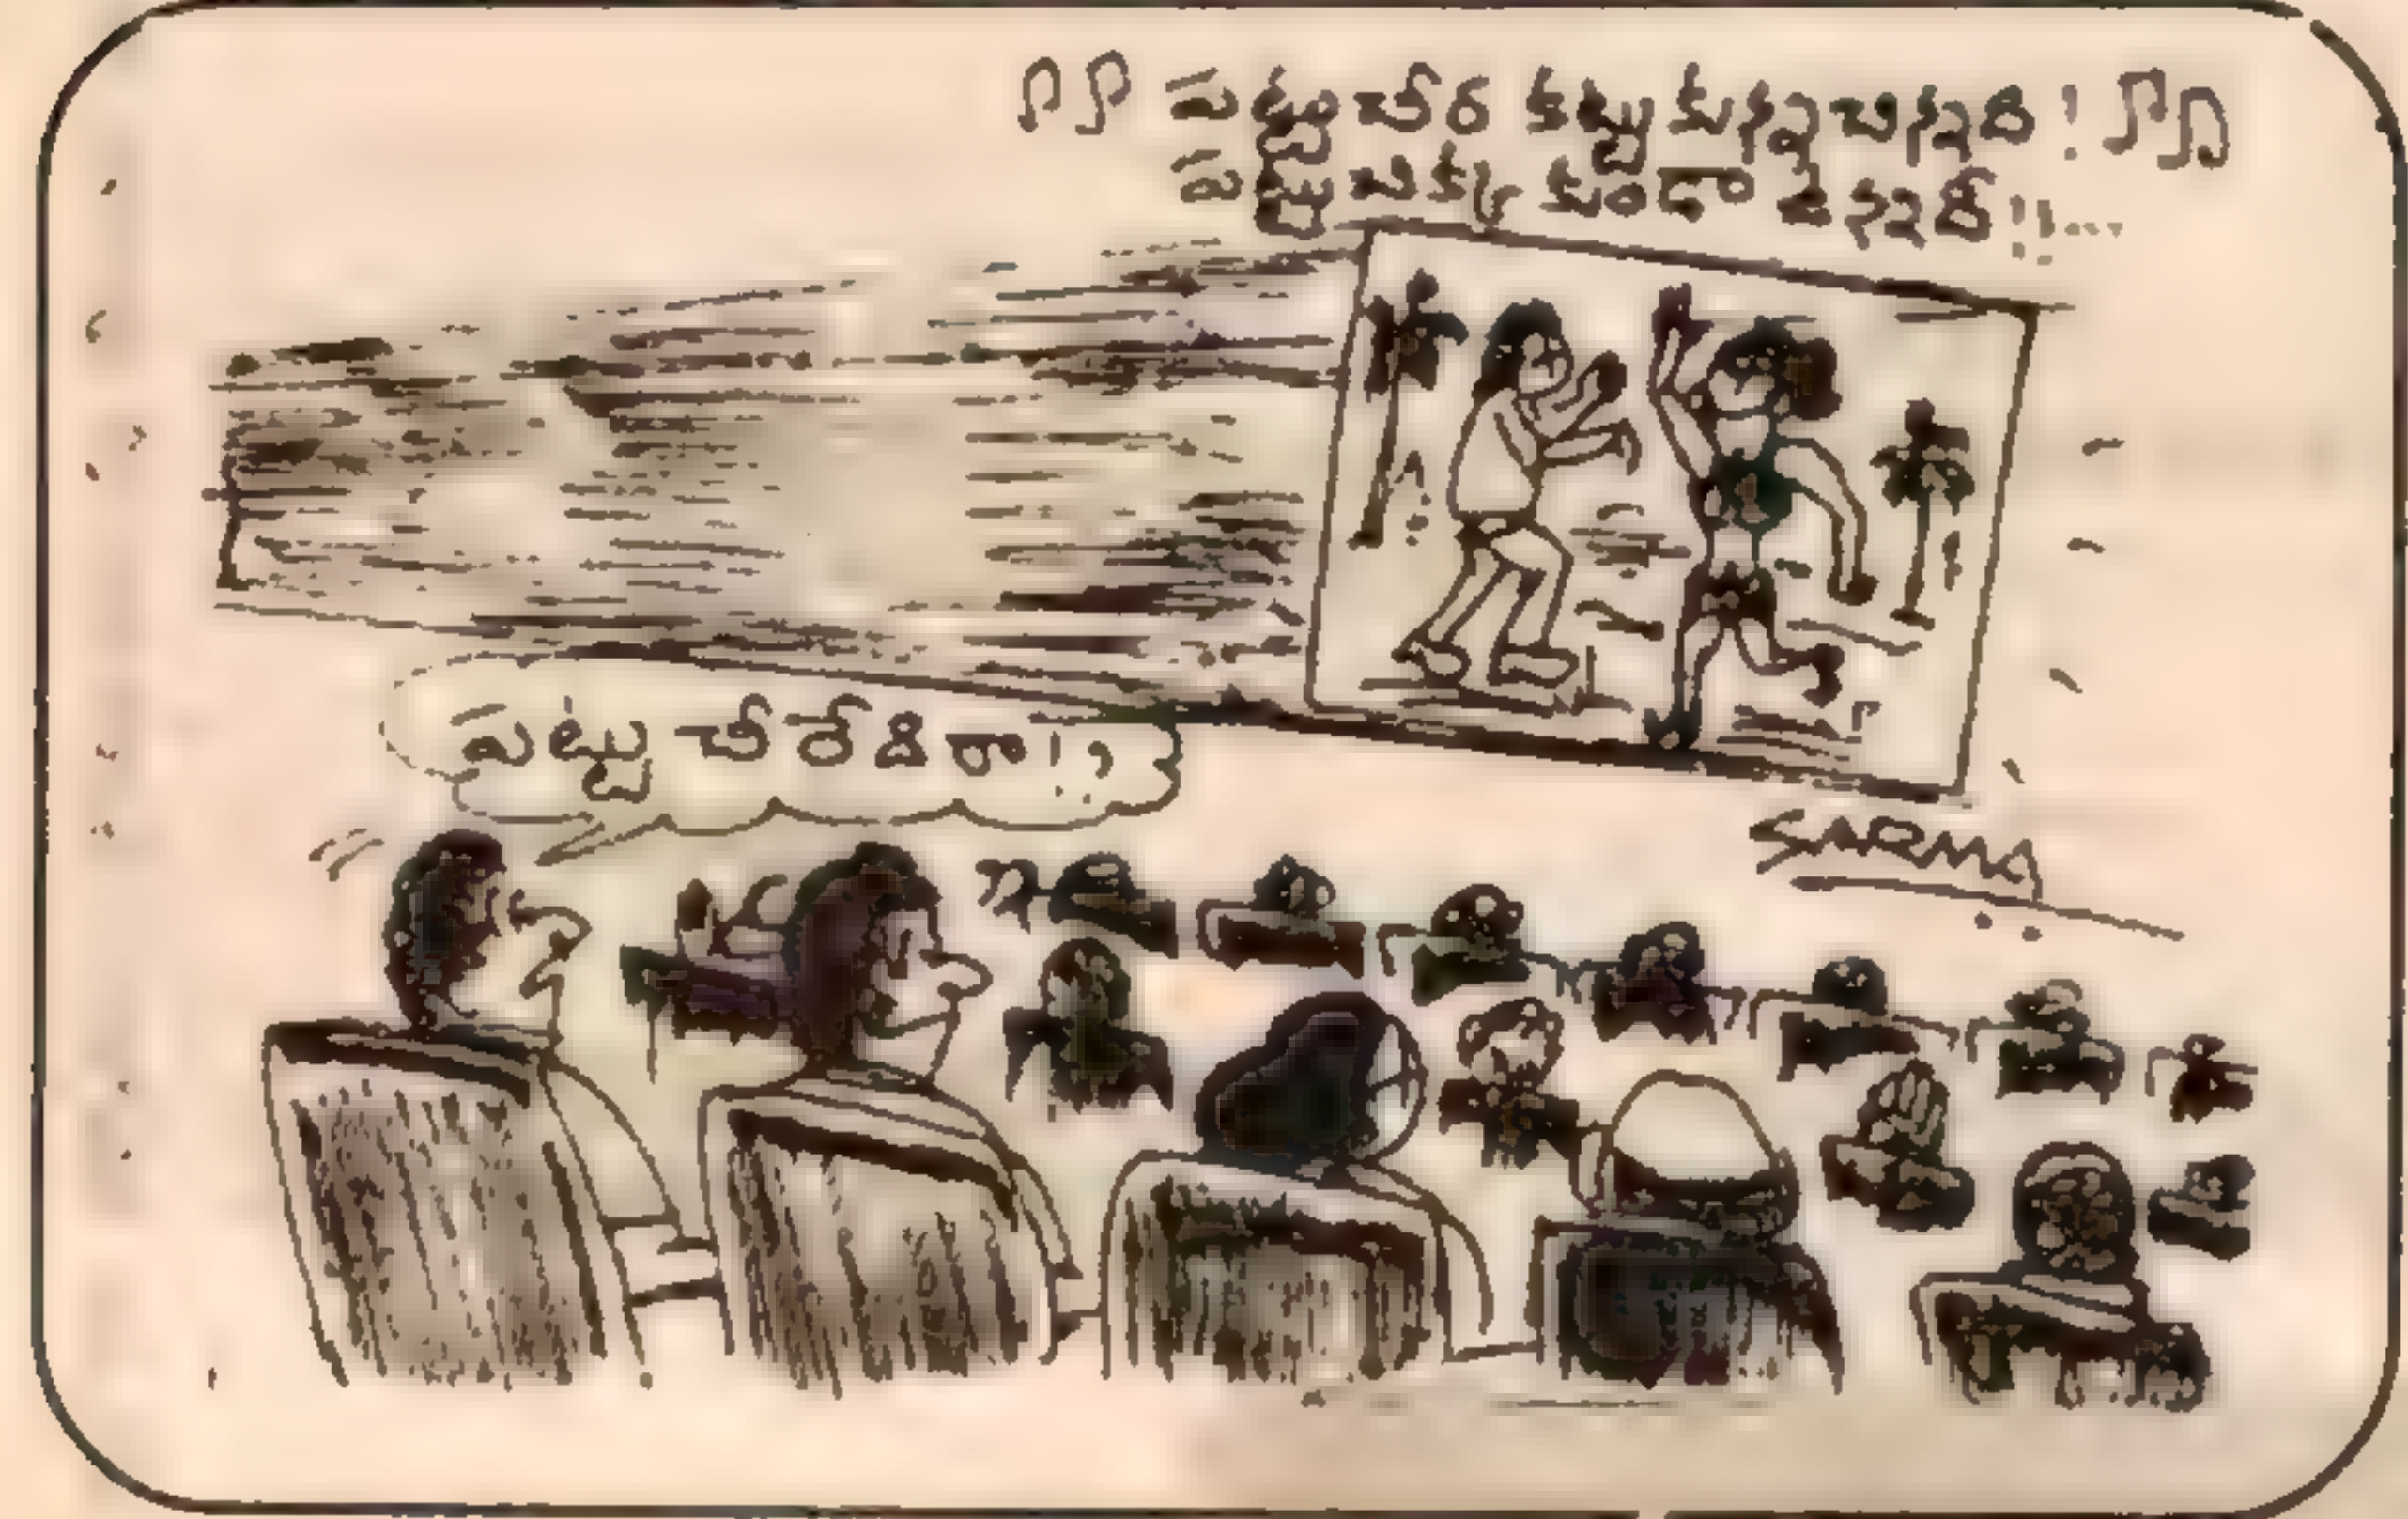 పట్టుచీర కట్టుకున్న చిన్నది!
పట్టు చిక్కకుండా ఉన్నది!!...
పట్టు చీరేదిరా!?
SARMA